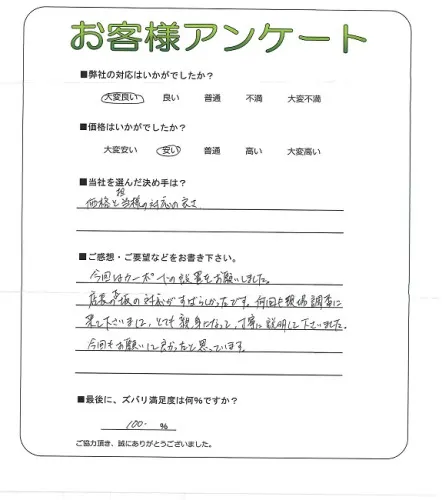 お客様アンケート
■弊社の対応はいかがでしたか？
大変良い 良い 普通 不満 大変不満
■価格はいかがでしたか？
大変安い 安い 普通 高い 大変高い
■当社を選んだ決め手は？
担
価格と当様の対応の良さ
■ご感想・ご要望などをお書き下さい。
今回はカーポートの設置をお願いしました。
店長の 坂の対応がすばらしかったです。何回も現場調査に
来て下さいまして、とても親身になって、丁寧に説明して下さいました。
今回もお願いして良かったと思っています。
■最後に、ズバリ満足度は何%ですか？
100. %
ご協力頂き、誠にありがとうございました。